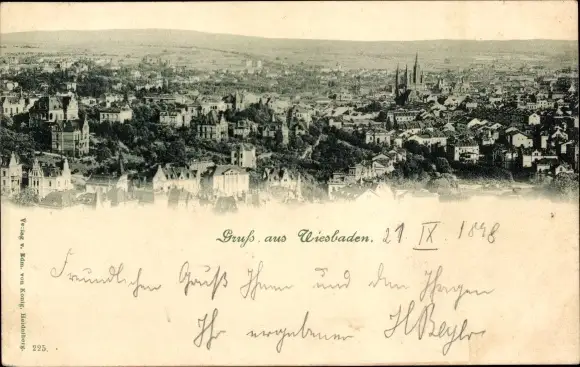 Gruß aus Wiesbaden. 21 IX. 1898
Freundlichen Gruß Ihnen und den Ihrigen
Ihr ergebener H Beyle
Verlag v. Edm. von König, Heidelberg.
225.